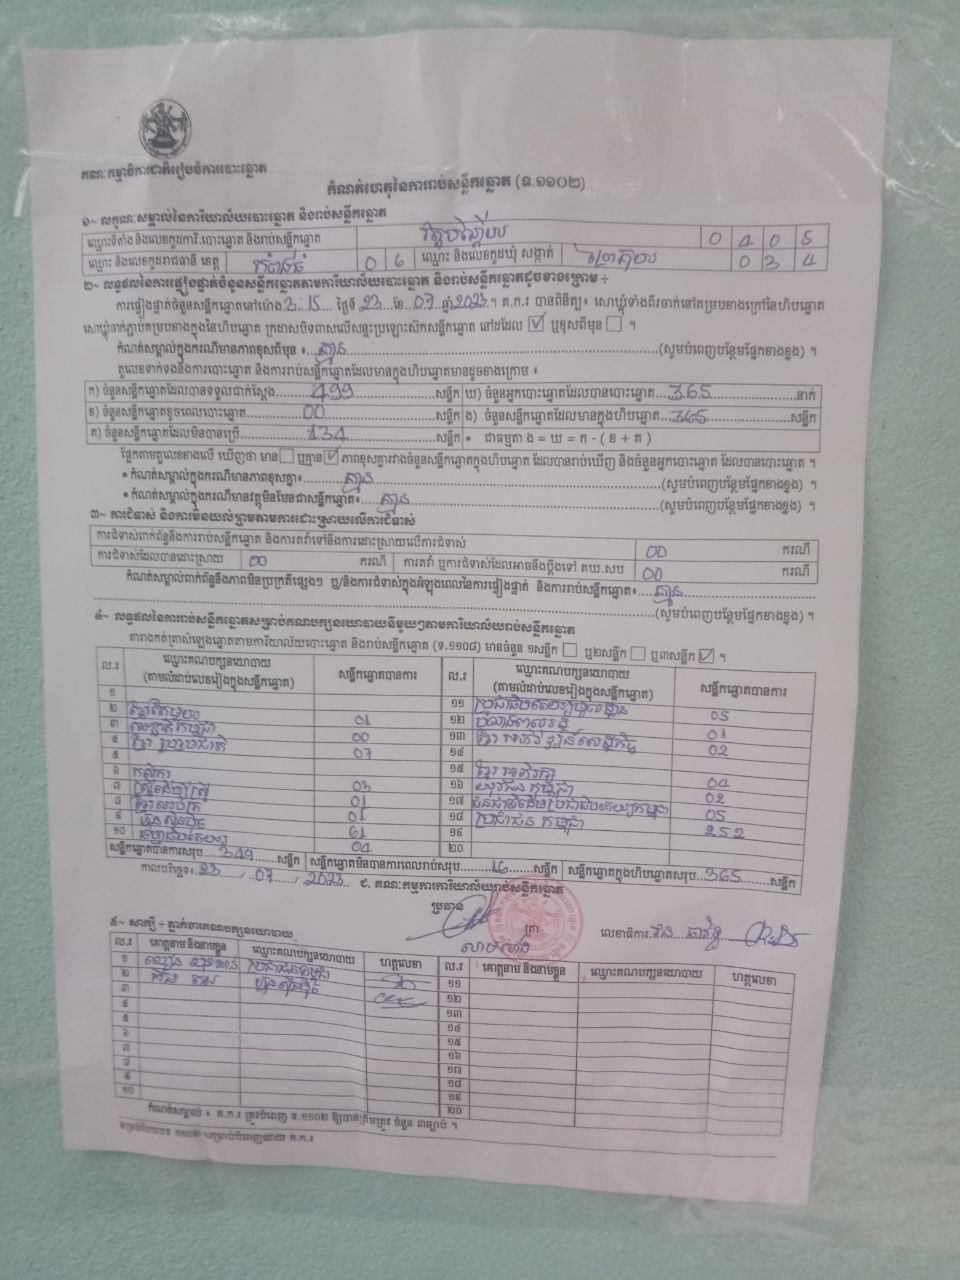 គណៈកម្មាធិការជាតិរៀបចំការបោះឆ្នោត
កំណត់ហេតុនៃការរាប់សន្លឹកឆ្នោត (ទ.១១០២)
១~ លក្ខណៈសម្គាល់នៃការិយាល័យបោះឆ្នោត និងរាប់សន្លឹកឆ្នោត
ឈ្មោះទីតាំង និងលេខកូដការិ.បោះឆ្នោត និងរាប់សន្លឹកឆ្នោត 0 4 0 5
ឈ្មោះ និងលេខកូដរាជធានី ខេត្ត កំពង់ធំ 0 6 ឈ្មោះ និងលេខកូដឃុំ សង្កាត់ 0 3 4
២~ លទ្ធផលនៃការផ្ទៀងផ្ទាត់ចំនួនសន្លឹកឆ្នោតតាមការិយាល័យបោះឆ្នោត និងរាប់សន្លឹកឆ្នោតដូចខាងក្រោម ÷
ការផ្ទៀងផ្ទាត់ចំនួនសន្លឹកឆ្នោតនៅម៉ោង 3:15 ថ្ងៃទី 23 ខែ 07 ឆ្នាំ 2023 ។ គ.ក.រ បានពិនិត្យ៖ សោឃ្លុំទាំងពីរចាក់នៅគម្របខាងក្រៅនៃហិបឆ្នោត
សោឃ្លុំចាក់ភ្ជាប់គម្របខាងក្នុងនៃហិបឆ្នោត ក្រដាសបិទពាសលើសន្ទះប្រឡោះសិកសន្លឹកឆ្នោត នៅដដែល ☑ ឬខុសពីមុន ☐ ។
កំណត់សម្គាល់ក្នុងករណីមានភាពខុសពីមុន ៖ គ្មាន (សូមបំពេញបន្ថែមផ្នែកខាងខ្នង) ។
តួលេខទាក់ទងនឹងការបោះឆ្នោត និងការរាប់សន្លឹកឆ្នោតដែលមានក្នុងហិបឆ្នោតមានដូចខាងក្រោម ៖
ក) ចំនួនសន្លឹកឆ្នោតដែលបានទទួលជាក់ស្តែង 499 សន្លឹក ឃ) ចំនួនអ្នកបោះឆ្នោតដែលបានបោះឆ្នោត 365 នាក់
ខ) ចំនួនសន្លឹកឆ្នោតខូចពេលបោះឆ្នោត 00 សន្លឹក ង) ចំនួនសន្លឹកឆ្នោតដែលមានក្នុងហិបឆ្នោត 365 សន្លឹក
គ) ចំនួនសន្លឹកឆ្នោតដែលមិនបានប្រើ 134 សន្លឹក • ជាធម្មតា ង = ឃ = ក - ( ខ + គ )
ផ្អែកតាមតួលេខខាងលើ ឃើញថា មាន ☐ ឬគ្មាន ☑ ភាពខុសគ្នារវាងចំនួនសន្លឹកឆ្នោតក្នុងហិបឆ្នោត ដែលបានរាប់ឃើញ និងចំនួនអ្នកបោះឆ្នោត ដែលបានបោះឆ្នោត ។
• កំណត់សម្គាល់ក្នុងករណីមានភាពខុសគ្នា៖ គ្មាន (សូមបំពេញបន្ថែមផ្នែកខាងខ្នង) ។
• កំណត់សម្គាល់ក្នុងករណីមានវត្ថុមិនមែនជាសន្លឹកឆ្នោត៖ គ្មាន (សូមបំពេញបន្ថែមផ្នែកខាងខ្នង) ។
៣~ ការជំទាស់ និងការមិនយល់ព្រមតាមការដោះស្រាយលើការជំទាស់
ការជំទាស់ពាក់ព័ន្ធនឹងការរាប់សន្លឹកឆ្នោត និងការតវ៉ាទៅនឹងការដោះស្រាយលើការជំទាស់ 00 ករណី
ការជំទាស់ដែលបានដោះស្រាយ 00 ករណី ការតវ៉ា ឬការជំទាស់ដែលអាចនឹងប្តឹងទៅ គឃ.សប 00 ករណី
កំណត់សម្គាល់ពាក់ព័ន្ធនឹងភាពមិនប្រក្រតីផ្សេងៗ ឬ/និងការជំទាស់ក្នុងអំឡុងពេលនៃការផ្ទៀងផ្ទាត់ និងការរាប់សន្លឹកឆ្នោត៖ គ្មាន
(សូមបំពេញបន្ថែមផ្នែកខាងខ្នង) ។
៤~ លទ្ធផលនៃការរាប់សន្លឹកឆ្នោតសម្រាប់គណបក្សនយោបាយនីមួយៗតាមការិយាល័យរាប់សន្លឹកឆ្នោត
តារាងកត់ត្រាសំឡេងឆ្នោតតាមការិយាល័យបោះឆ្នោត និងរាប់សន្លឹកឆ្នោត (ទ.១១០៨) មានចំនួន ១សន្លឹក ☐ ឬ២សន្លឹក ☐ ឬ៣សន្លឹក ☑ ។
ល.រ ឈ្មោះគណបក្សនយោបាយ (តាមលំដាប់លេខរៀងក្នុងសន្លឹកឆ្នោត) សន្លឹកឆ្នោតបានការ ល.រ ឈ្មោះគណបក្សនយោបាយ (តាមលំដាប់លេខរៀងក្នុងសន្លឹកឆ្នោត) សន្លឹកឆ្នោតបានការ
១ 01 ១១ 05
២ 00 ១២ 01
៣ 07 ១៣ 02
៤ ១៤
៥ 03 ១៥ 04
៦ 01 ១៦ 02
៧ 01 ១៧ 05
៨ 61 ១៨ ប្រជាជន កម្ពុជា 252
៩ 04 ១៩
១០ ២០
សន្លឹកឆ្នោតបានការសរុប 349 សន្លឹក សន្លឹកឆ្នោតមិនបានការពេលរាប់សរុប 16 សន្លឹក សន្លឹកឆ្នោតក្នុងហិបឆ្នោតសរុប 365 សន្លឹក
កាលបរិច្ឆេទ៖ 23 / 07 / 2023 ជ. គណៈកម្មការការិយាល័យរាប់សន្លឹកឆ្នោត
ប្រធាន ត្រា លេខាធិការ
៥~ សាក្សី ÷ ភ្នាក់ងារគណបក្សនយោបាយ
ល.រ គោត្តនាម និងនាមខ្លួន ឈ្មោះគណបក្សនយោបាយ ហត្ថលេខា ល.រ គោត្តនាម និងនាមខ្លួន ឈ្មោះគណបក្សនយោបាយ ហត្ថលេខា
១ ១១
២ ១២
៣ ១៣
៤ ១៤
៥ ១៥
៦ ១៦
៧ ១៧
៨ ១៨
៩ ១៩
១០ ២០
កំណត់សម្គាល់ ៖ គ.ក.រ ត្រូវបំពេញ ទ.១១០២ ឱ្យបានត្រឹមត្រូវ ចំនួន ៣ច្បាប់ ។
ទម្រង់បែបបទ ១១០២ សម្រាប់បំពេញដោយ គ.ក.រ